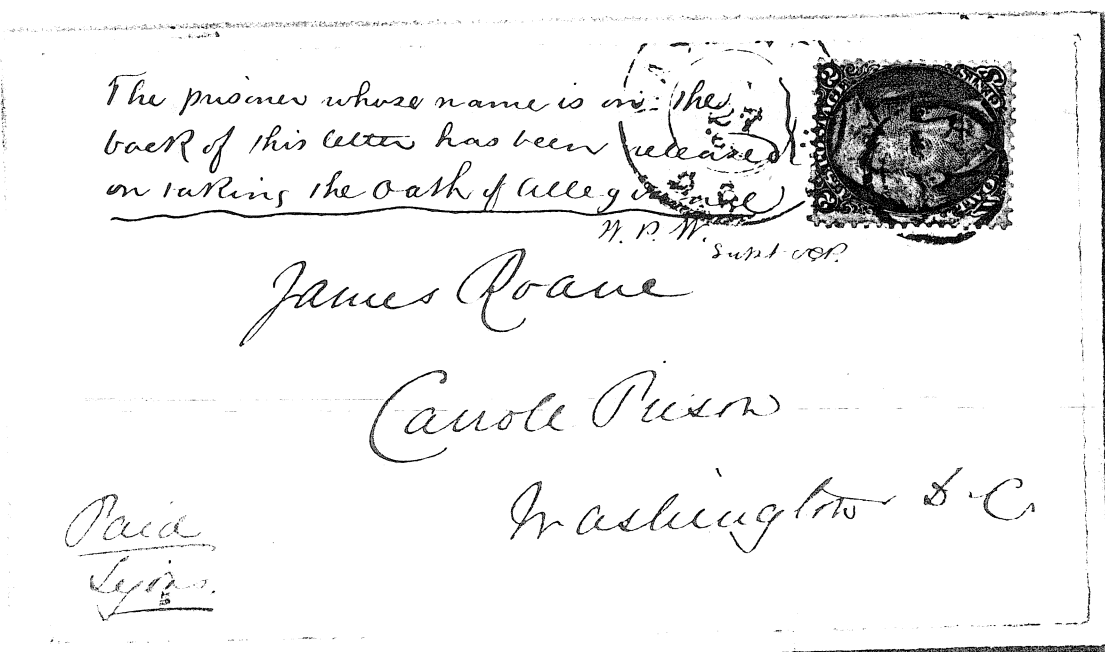 The prisoner whose name is on the
back of this letter has been released
on taking the Oath of Allegiance
W. P. W.
Supt OCP.
James Roane
Carroll Prison
Washington D. C.
Paid
Lyons.